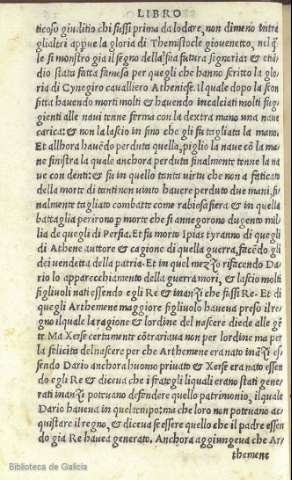 LIBRO
ticoso giuditio chi fussi prima da lodare, non dimeno intra
glialtri appue la gloria di Themistocle giovenetto, nel qua
le si monstro gia il segno della sua futura signoria: & etiã
dio stata fatta famosa per quegli che hanno scritto la glo
ria di Cynegiro cavalliero Atheniese. Il quale dopo la scon
fitta havendo morti molti & havendo incalciati molti fug
gienti alle navi tenne ferma con la dextra mano una nave
carica: & non la lascio in fino che gli fu tagliata la mano.
Et allhora havẽdo perduta quella, piglio la nave cõ la ma
ne sinistra la quale anchora perduta finalmente tenne la na
ve con denti: & fu in quello tanta virtu che non a faticato
della morte di tanti non vinto havere perduto due mani, fi
nalmente tagliato combatte come rabiosa fiera & in quella
battaglia perirono p morte che si annegorono dugento mil
lia de quegli di Persia. Et fu morto Ipias tyranno di quegli
di Athene auttore & cagione di quella guerra, facẽdo gli
dei vendetta della patria. Et in quel mezzo rifacendo Da
rio lo apparecchiamento della guerra mori, & lascio molti
figliuoli nati essendo egli Re & inanzi che fussi Re. Et di
quegli Arthemene maggiore figliuolo haveva preso il re
gno il quale la ragione & lordine del nascere diede alle gẽ
te Ma Xerse certamente cõtrariava non per lordine ma per
la felicita del nascere per che Arthemene era nato inãzi es
sendo Dario anchora huomo privato & Xerse era nato essen
do egli Re & diceva che i frategli liquali erano stati gene
rati inanzi potevano defendere quello patrimonio, il quale
Dario haveva in quel tempo: ma che loro non potevano ac
quistare il regno, & diceva se essere quello che il padre essen
do gia Re haveva generato. Anchora aggiungeva che Ar
themene
Biblioteca de Galicia